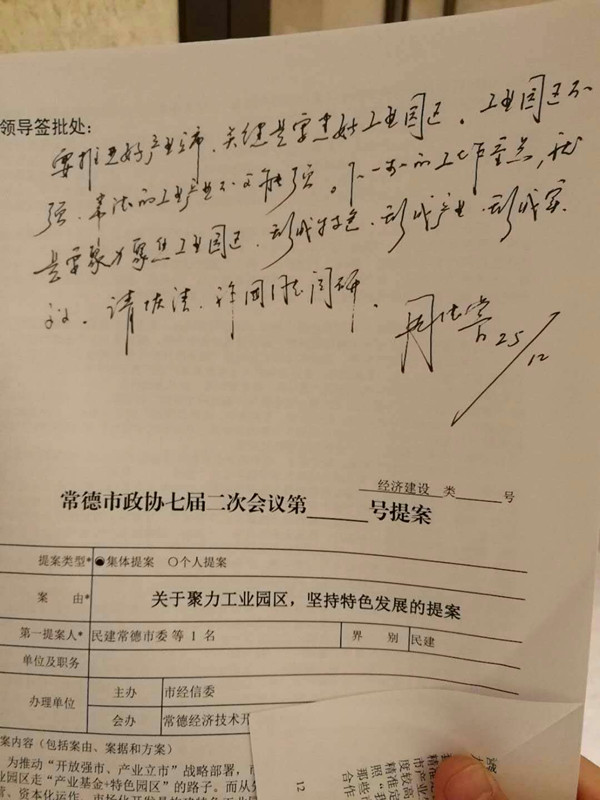 领导签批处：
要推进好产业立市，关键是要建好工业园区。工业园区不
强，常德的工业产业不可能强。下一步的工作重点，就
是要聚力聚焦工业园区，形成特色、形成产业、形成实
效。请 阅研。
周德睿 25/12
经济建设 类 号
常德市政协七届二次会议第 号提案
提案类型* 集体提案 个人提案
案 由* 关于聚力工业园区，坚持特色发展的提案
第一提案人* 民建常德市委 等 1 名 界 别 民建
单位及职务
办理单位 主办 市经信委
会办 常德经济技术开
案内容（包括案由、案据和方案）
为推动“开放强市、产业立市”战略部署，
业园区走“产业基金+特色园区”的路子。而从
12
精准定
市产业
度较高
照“我
那些
合作